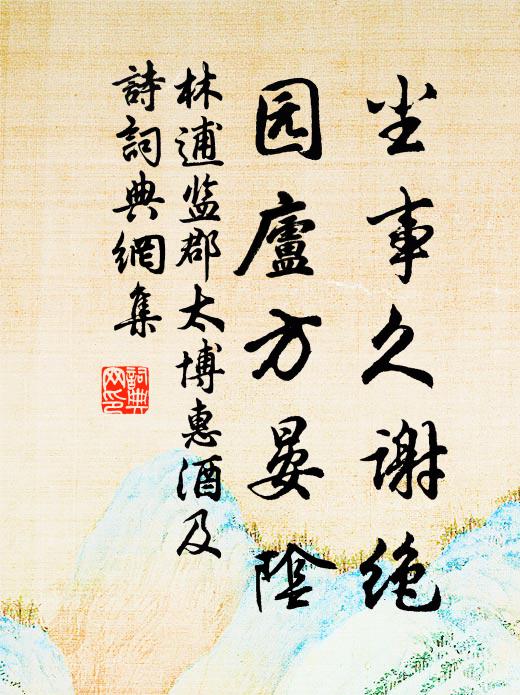 尘事久谢绝
园廬方晏陰
林逋监郡太博惠酒及
詩詞典網集
詞典网印